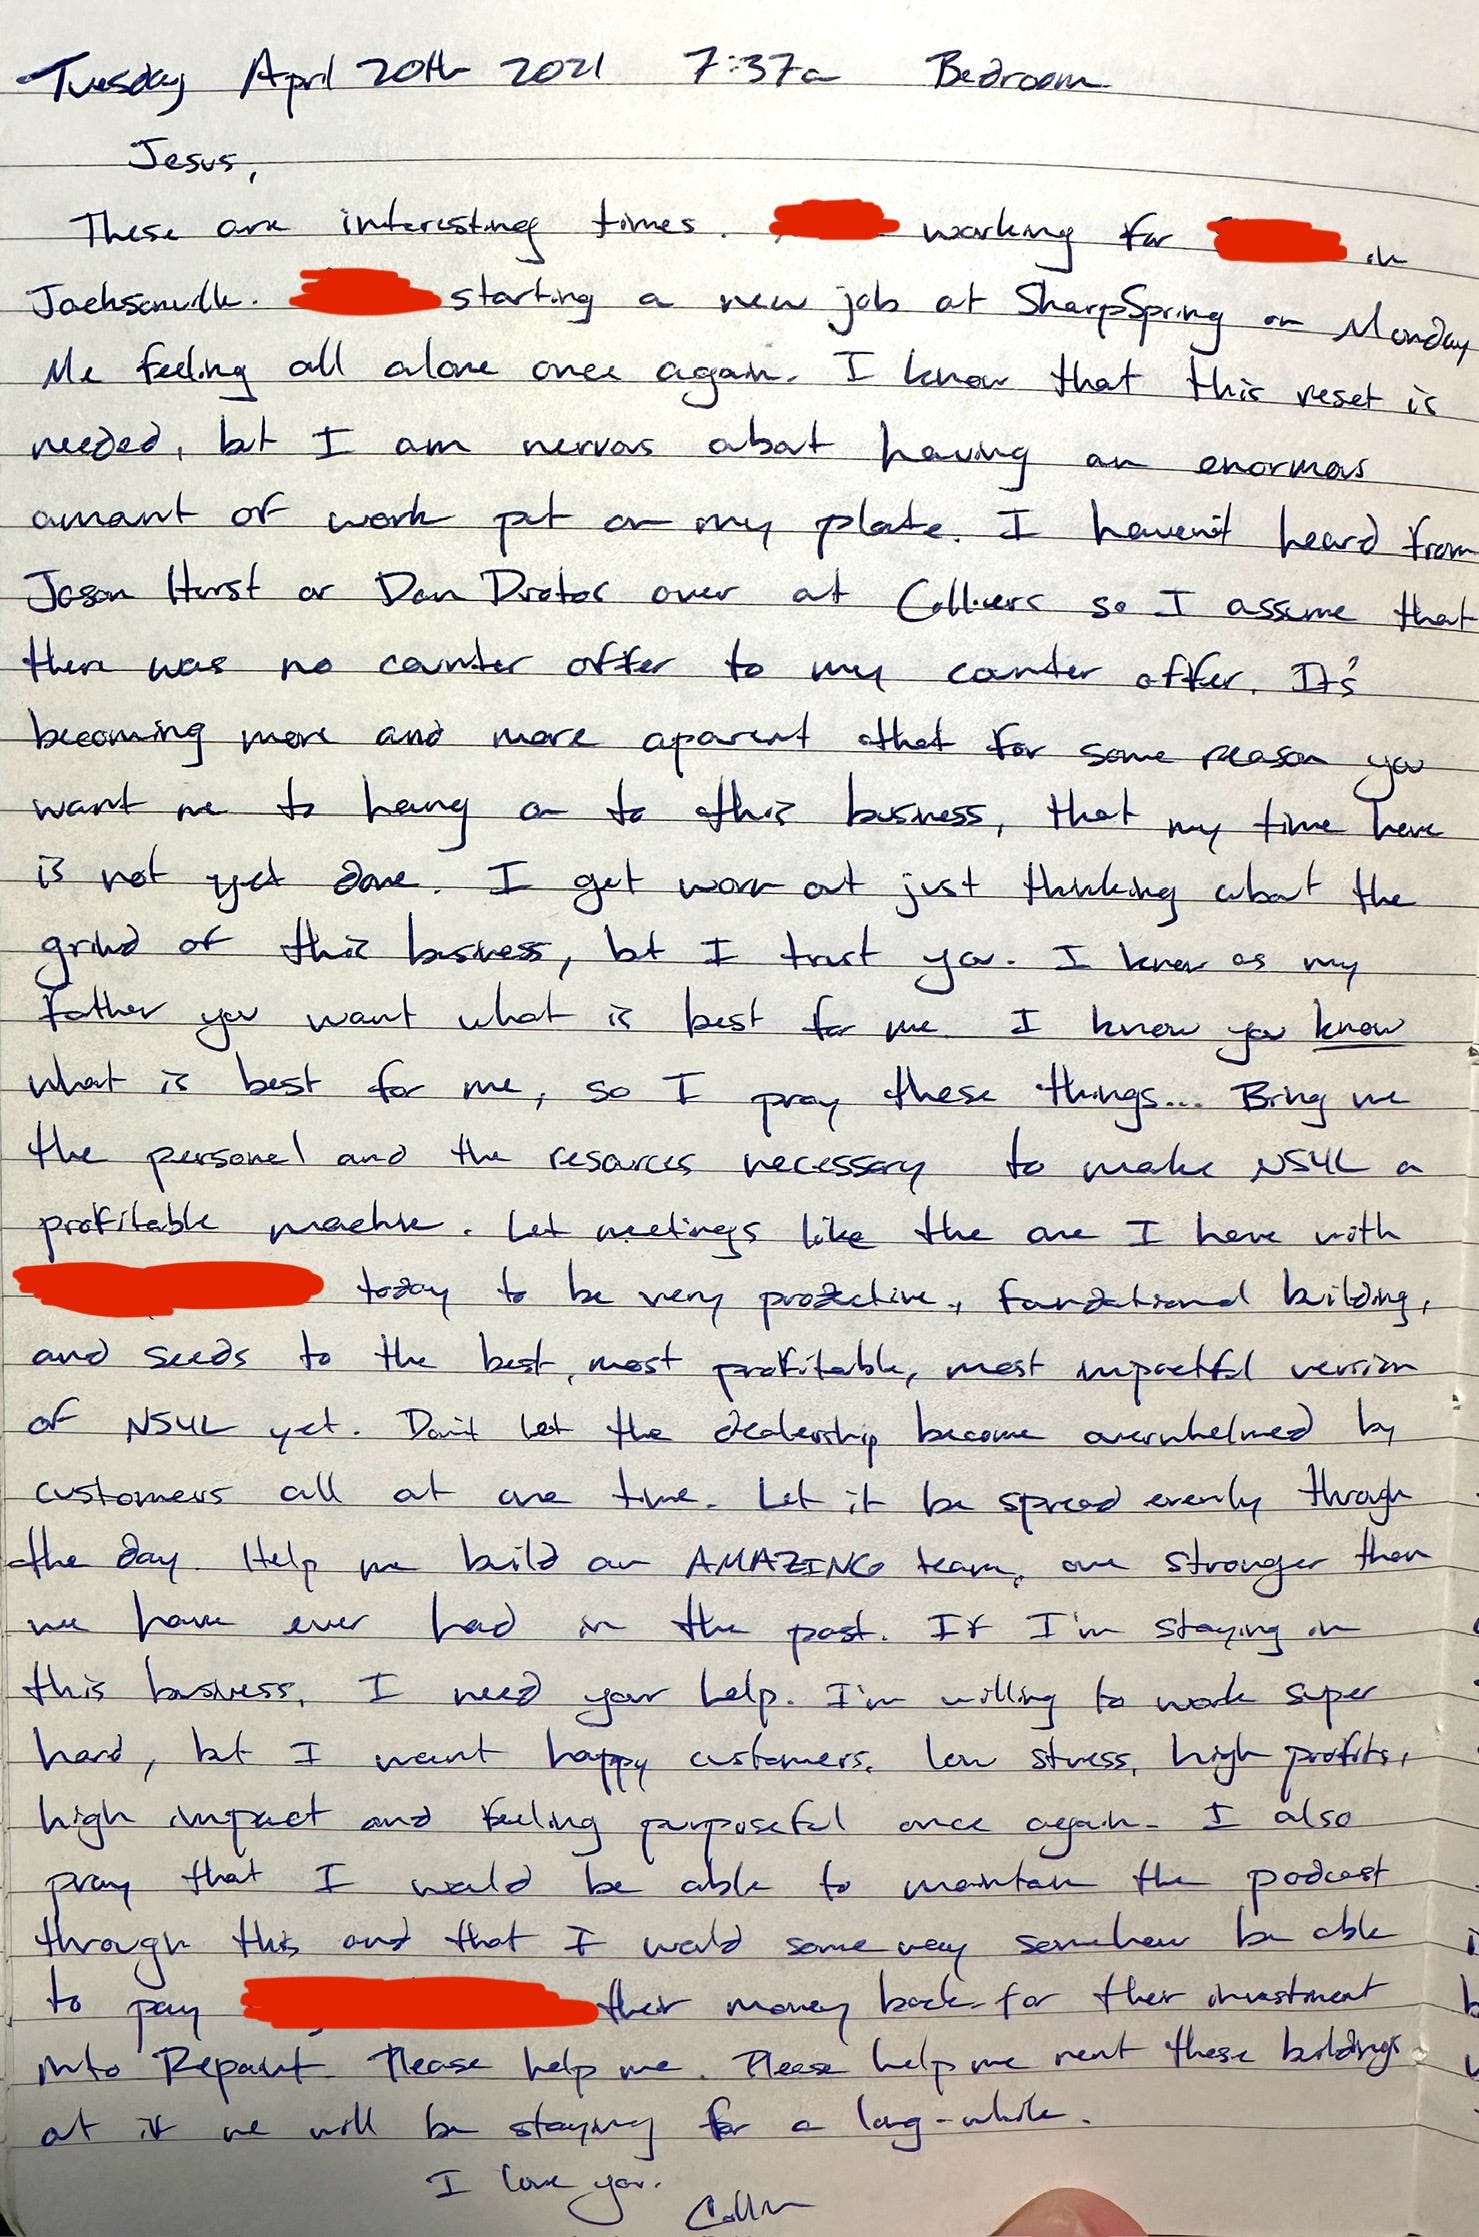 Tuesday April 20th 2021 7:37a Bedroom
Jesus,
These are interesting times. working for in
Jacksonville. starting a new job at SharpSpring on Monday
Me feeling all alone once again. I know that this reset is
needed, but I am nervous about having an enormous
amount of work put on my plate. I haven't heard from
Jason Hurst or Dan Drotos over at Colliers so I assume that
there was no counter offer to my counter offer. It's
becoming more and more aparent that for some reason you
want me to hang on to this business, that my time here
is not yet done. I get worn out just thinking about the
grind of this business, but I trust you. I know as my
Father you want what is best for me I know you know
what is best for me, so I pray these things... Bring me
the personel and the resources necessary to make NS4L a
profitable machine. Let meetings like the one I have with
today to be very productive, foundational building,
and seeds to the best, most profitable, most impactful version
of NS4L yet. Don't let the dealership become overwhelmed by
customers all at one time. Let it be spread evenly through
the day. Help me build an AMAZING team, one stronger than
we have ever had in the past. If I'm staying in
this business, I need your help. I'm willing to work super
hard, but I want happy customers, low stress, high profits,
high impact and feeling purposeful once again. I also
pray that I would be able to maintain the podcast
through this and that I would some way somehow be able
to pay their money back for their investment
into Repaint. Please help me. Please help me rent these buildings
out if we will be staying for a long-while.
I love you.
Collin